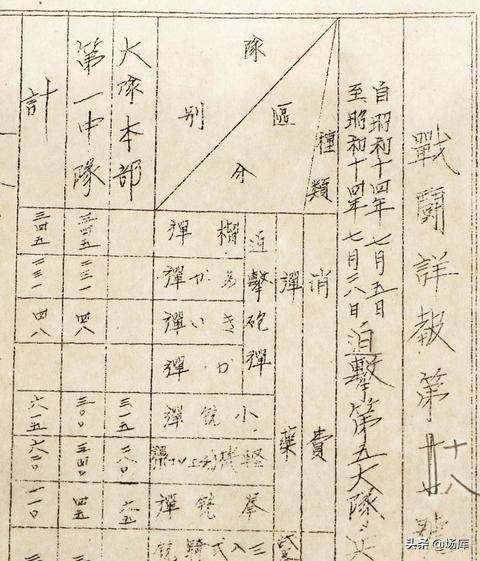 戰鬪詳報第十八號
自昭和十四年七月五日
至昭和十四年七月二八日
迫擊第五大隊
隊 區 分 種類 別
消費
彈藥
迫擊砲彈
榴彈
あか彈
きい彈
か彈
小銃彈
輕機
拳銃彈
三八式騎銃
大隊本部
三一五
二八〇
六五
第一中隊
三四五
二三一
四八
三〇〇
三四〇
四五
計
三四五
二三一
四八
六一五
六二〇
一一〇
头条 @场库